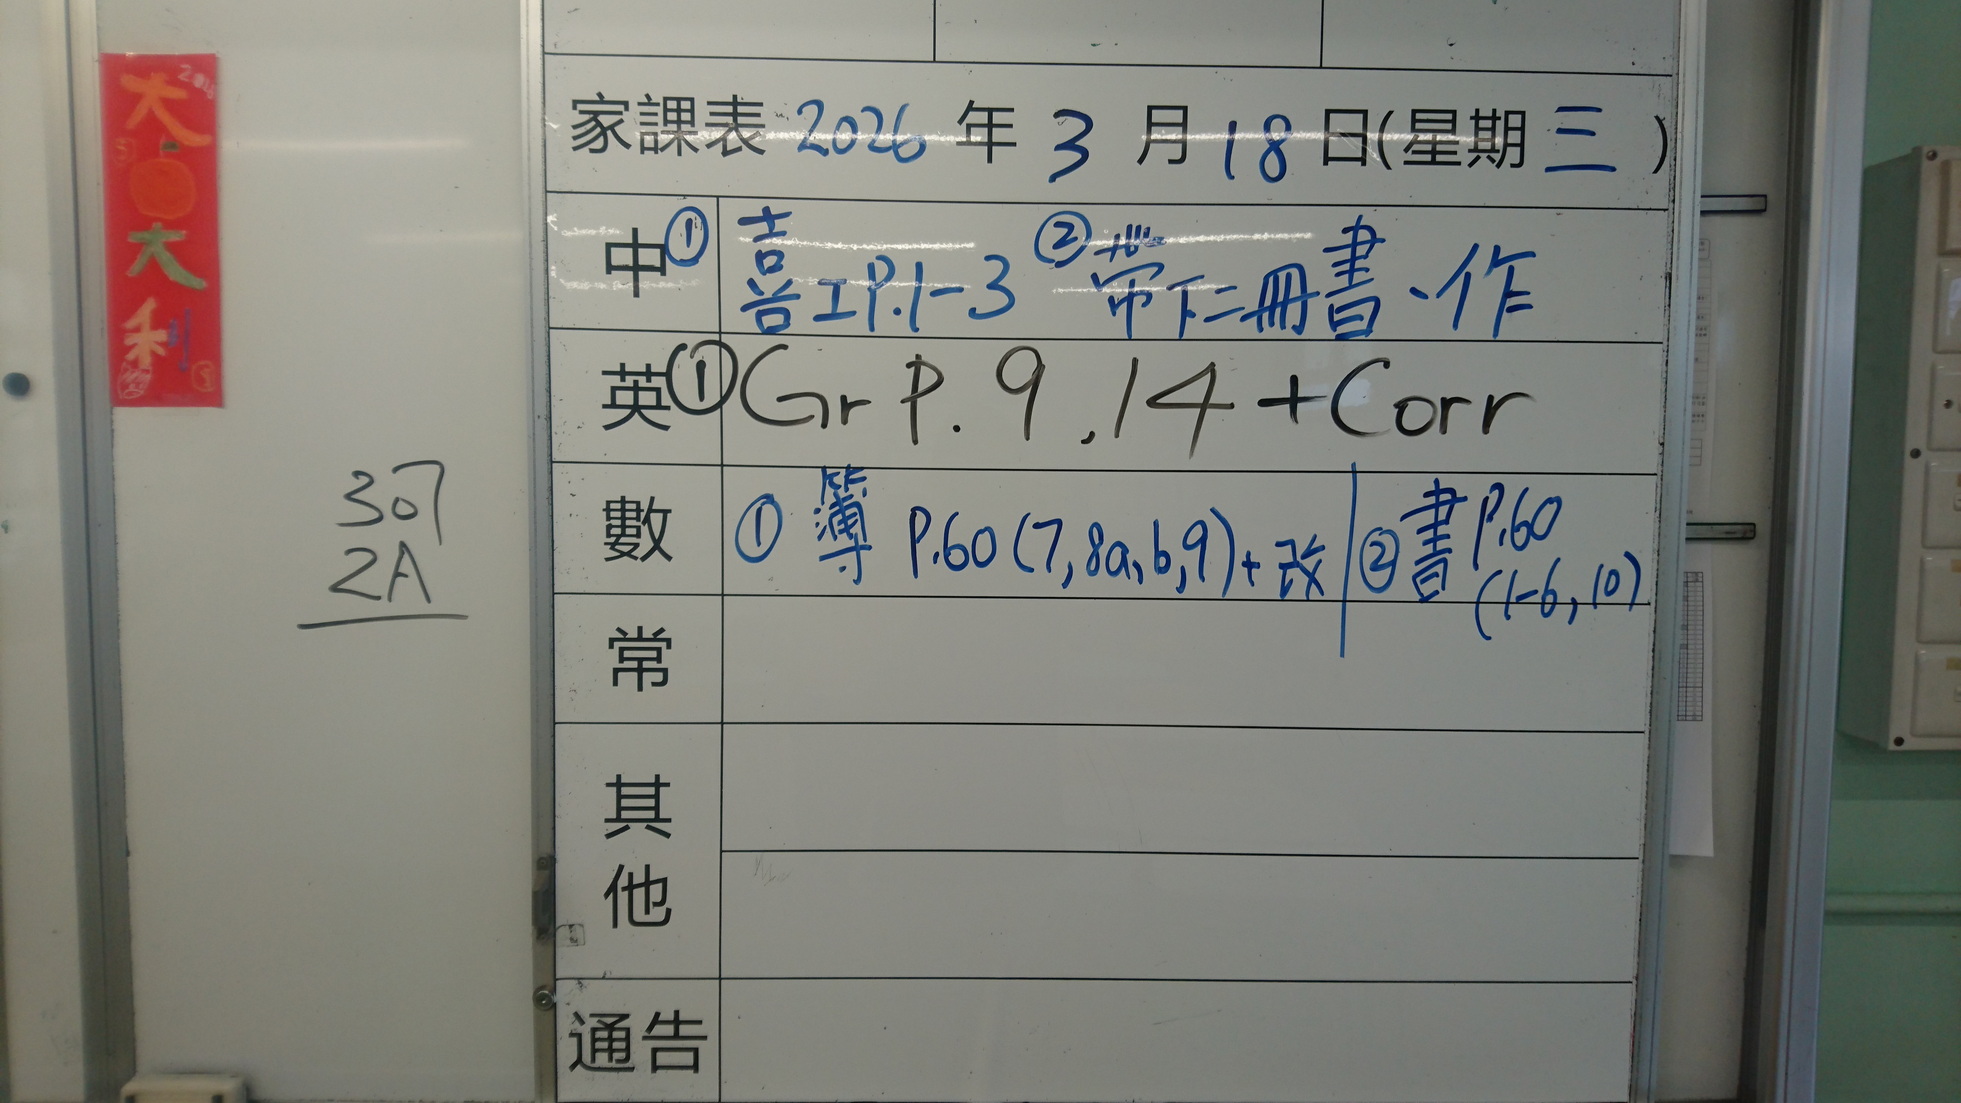 2026
大
大
利
家課表 2026 年 3 月 18 日(星期 三 )
中 ① 喜工P.1-3 ② 帶下二冊書、作
英 ① Gr P. 9 , 14 + Corr
數 ① 簿 P.60 (7, 8a, b, 9) + 改 ② 書 P.60
(1-6, 10)
常
其
他
通告
307
2A